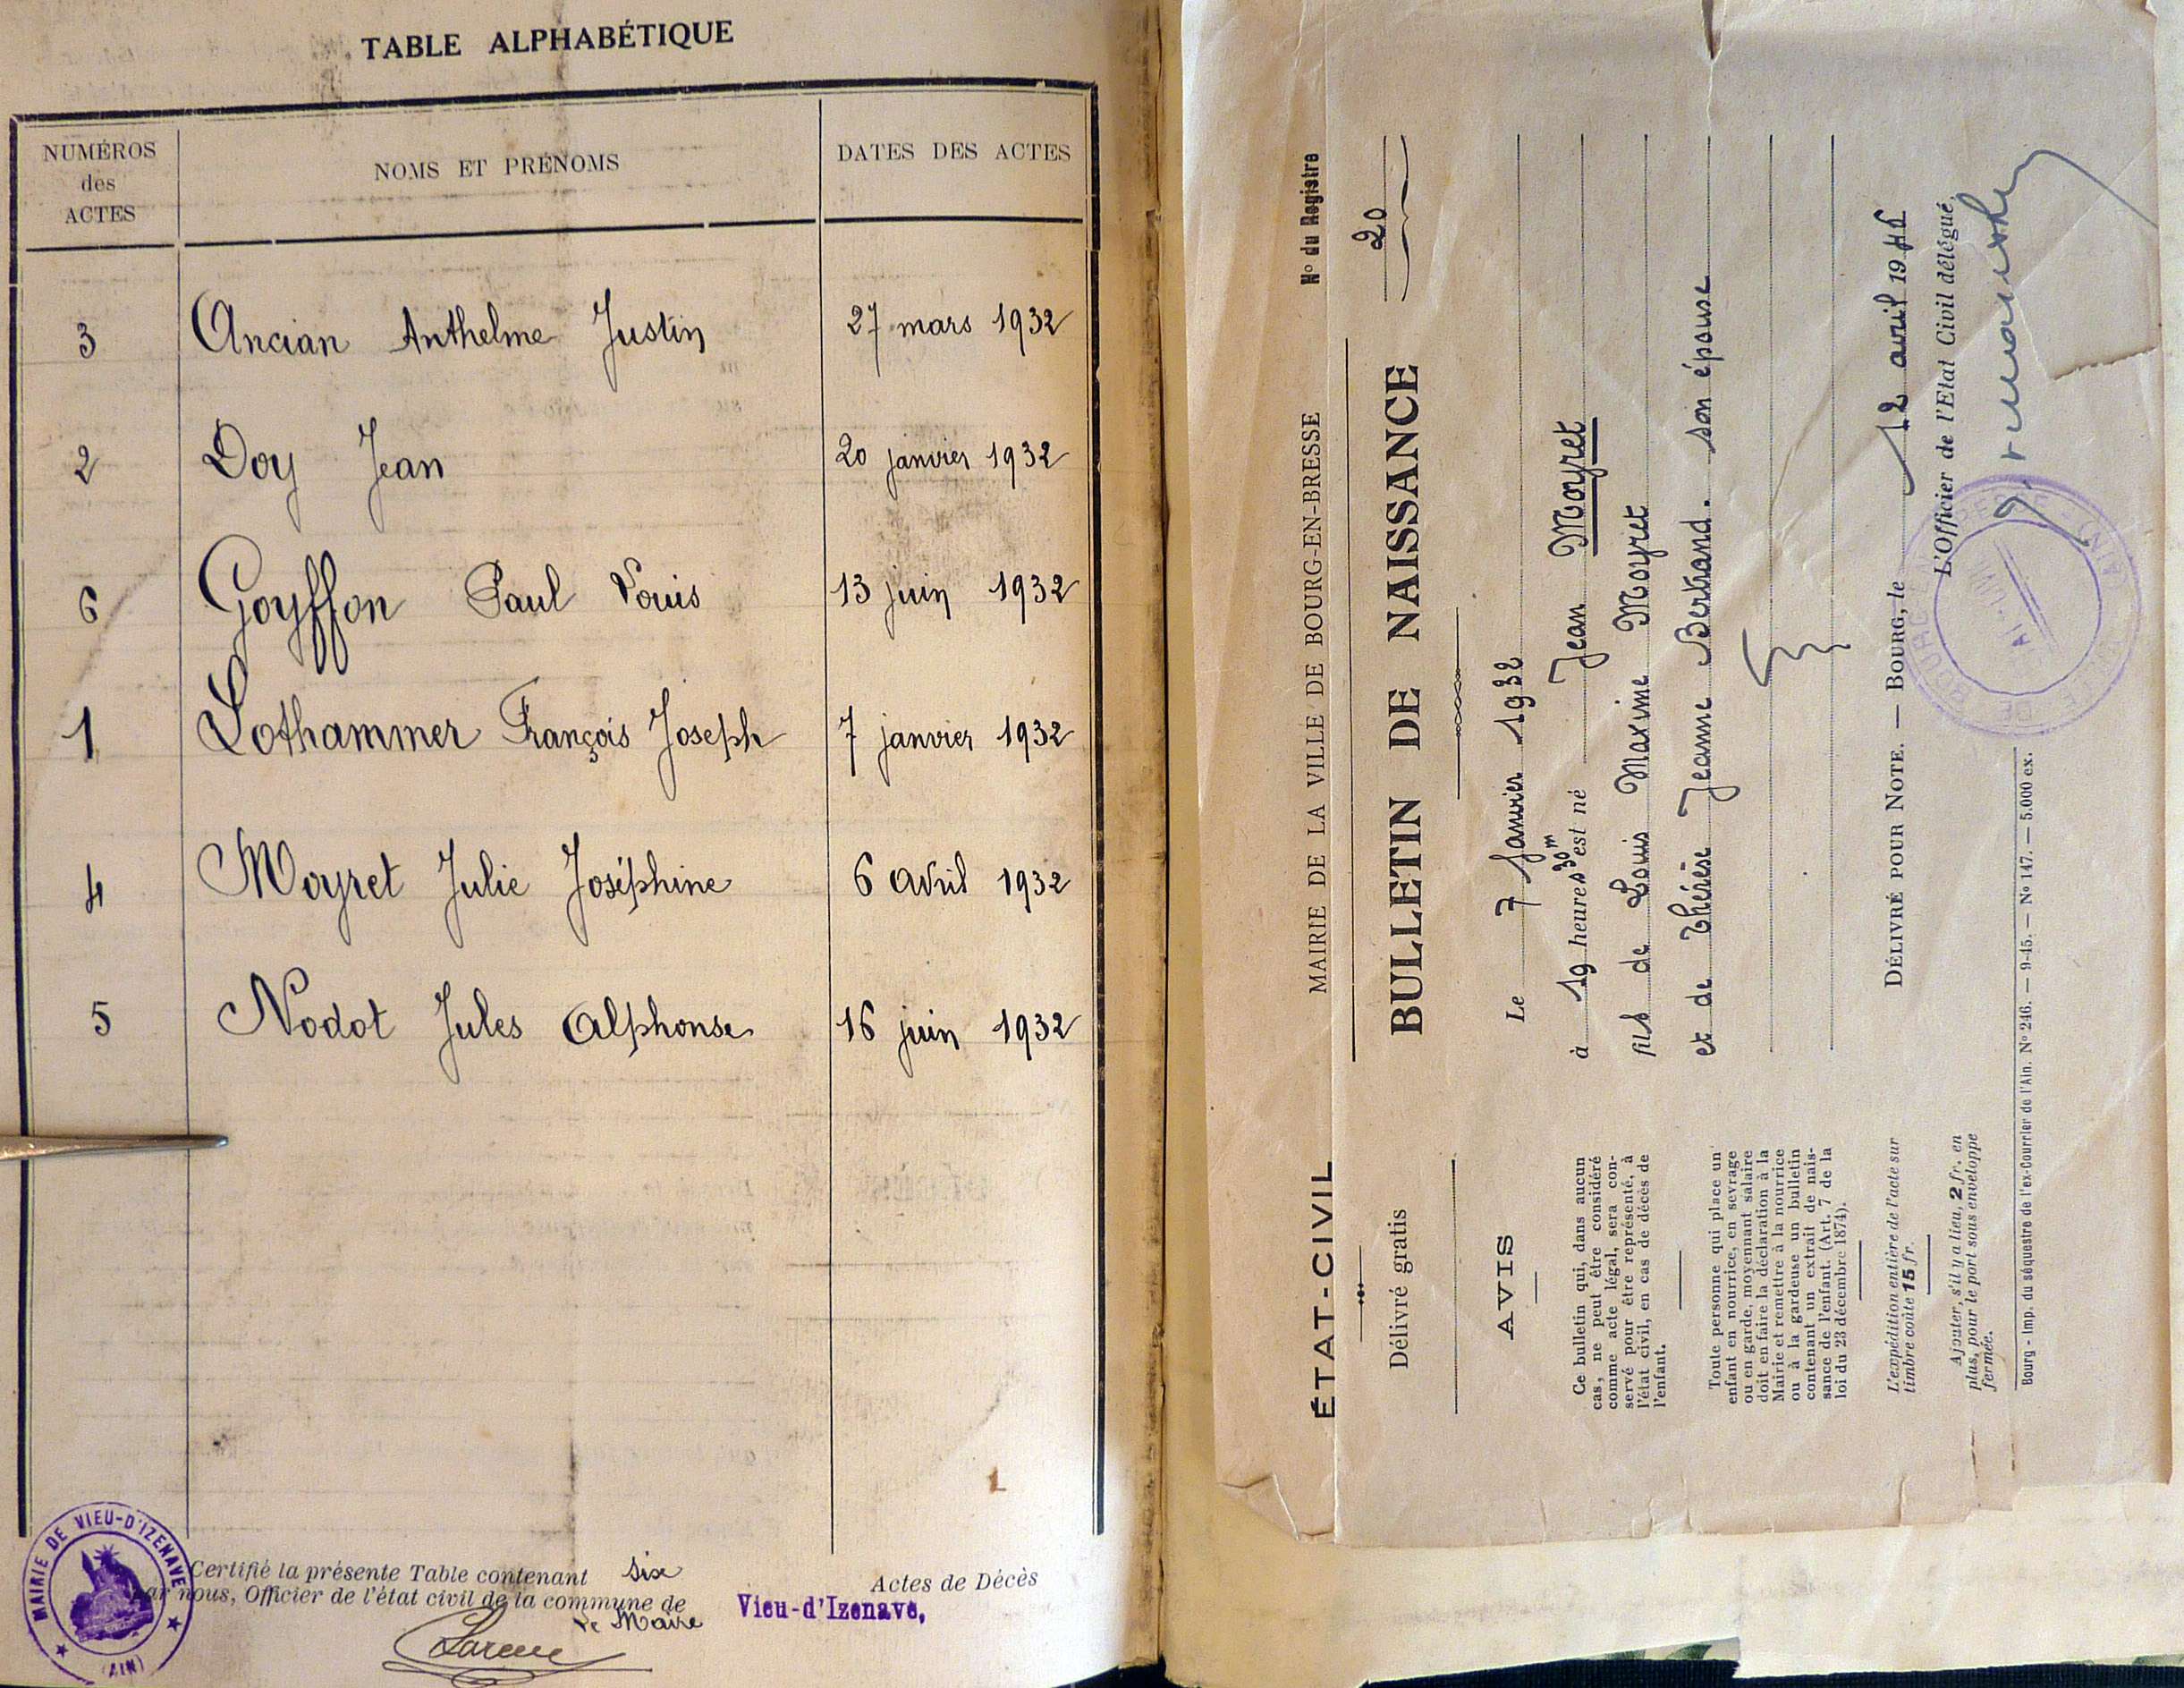 TABLE ALPHABÉTIQUE
NUMÉROS
des
ACTES
NOMS ET PRÉNOMS
DATES DES ACTES
3 Ancian Anthelme Justin 27 mars 1932
2 Doy Jean 20 janvier 1932
6 Goyffon Paul Louis 13 juin 1932
1 Lothammer François Joseph 7 janvier 1932
4 Moyret Julie Joséphine 6 avril 1932
5 Nodot Jules Alphonse 16 juin 1932
Certifié la présente Table contenant six Actes de Décès
par nous, Officier de l'état civil de la commune de Vieu-d'Izenave,
Le Maire
MAIRIE DE VIEU-D'IZENAVE
(AIN)
ÉTAT-CIVIL
Délivré gratis
AVIS
Ce bulletin qui, dans aucun
cas, ne peut être considéré
comme acte légal, sera con-
servé pour être représenté, à
l'état civil, en cas de décès de
l'enfant.
Toute personne qui place un
enfant en nourrice, en sevrage
ou en garde, moyennant salaire
doit en faire la déclaration à la
Mairie et remettre à la nourrice
ou à la gardeuse un bulletin
contenant un extrait de nais-
sance de l'enfant. (Art. 7 de la
loi du 23 décembre 1874).
L'expédition entière de l'acte sur
timbre coûte 15 fr.
Ajouter, s'il y a lieu, 2 fr. en
plus, pour le port sous enveloppe
fermée.
MAIRIE DE LA VILLE DE BOURG-EN-BRESSE
N° du Registre
20
BULLETIN DE NAISSANCE
Le 7 Janvier 1932
à 19 heures 30m est né Jean Moyret
fils de Louis Maxime Moyret
et de Thérèse Jeanne Bertrand. son épouse
DÉLIVRÉ POUR NOTE. — BOURG, le 12 avril 1946
L'Officier de l'Etat Civil délégué,
Bourg - Imp. du séquestre de l'ex-Courrier de l'Ain. N° 246. — 9-45. — N° 147. — 5.000 ex.